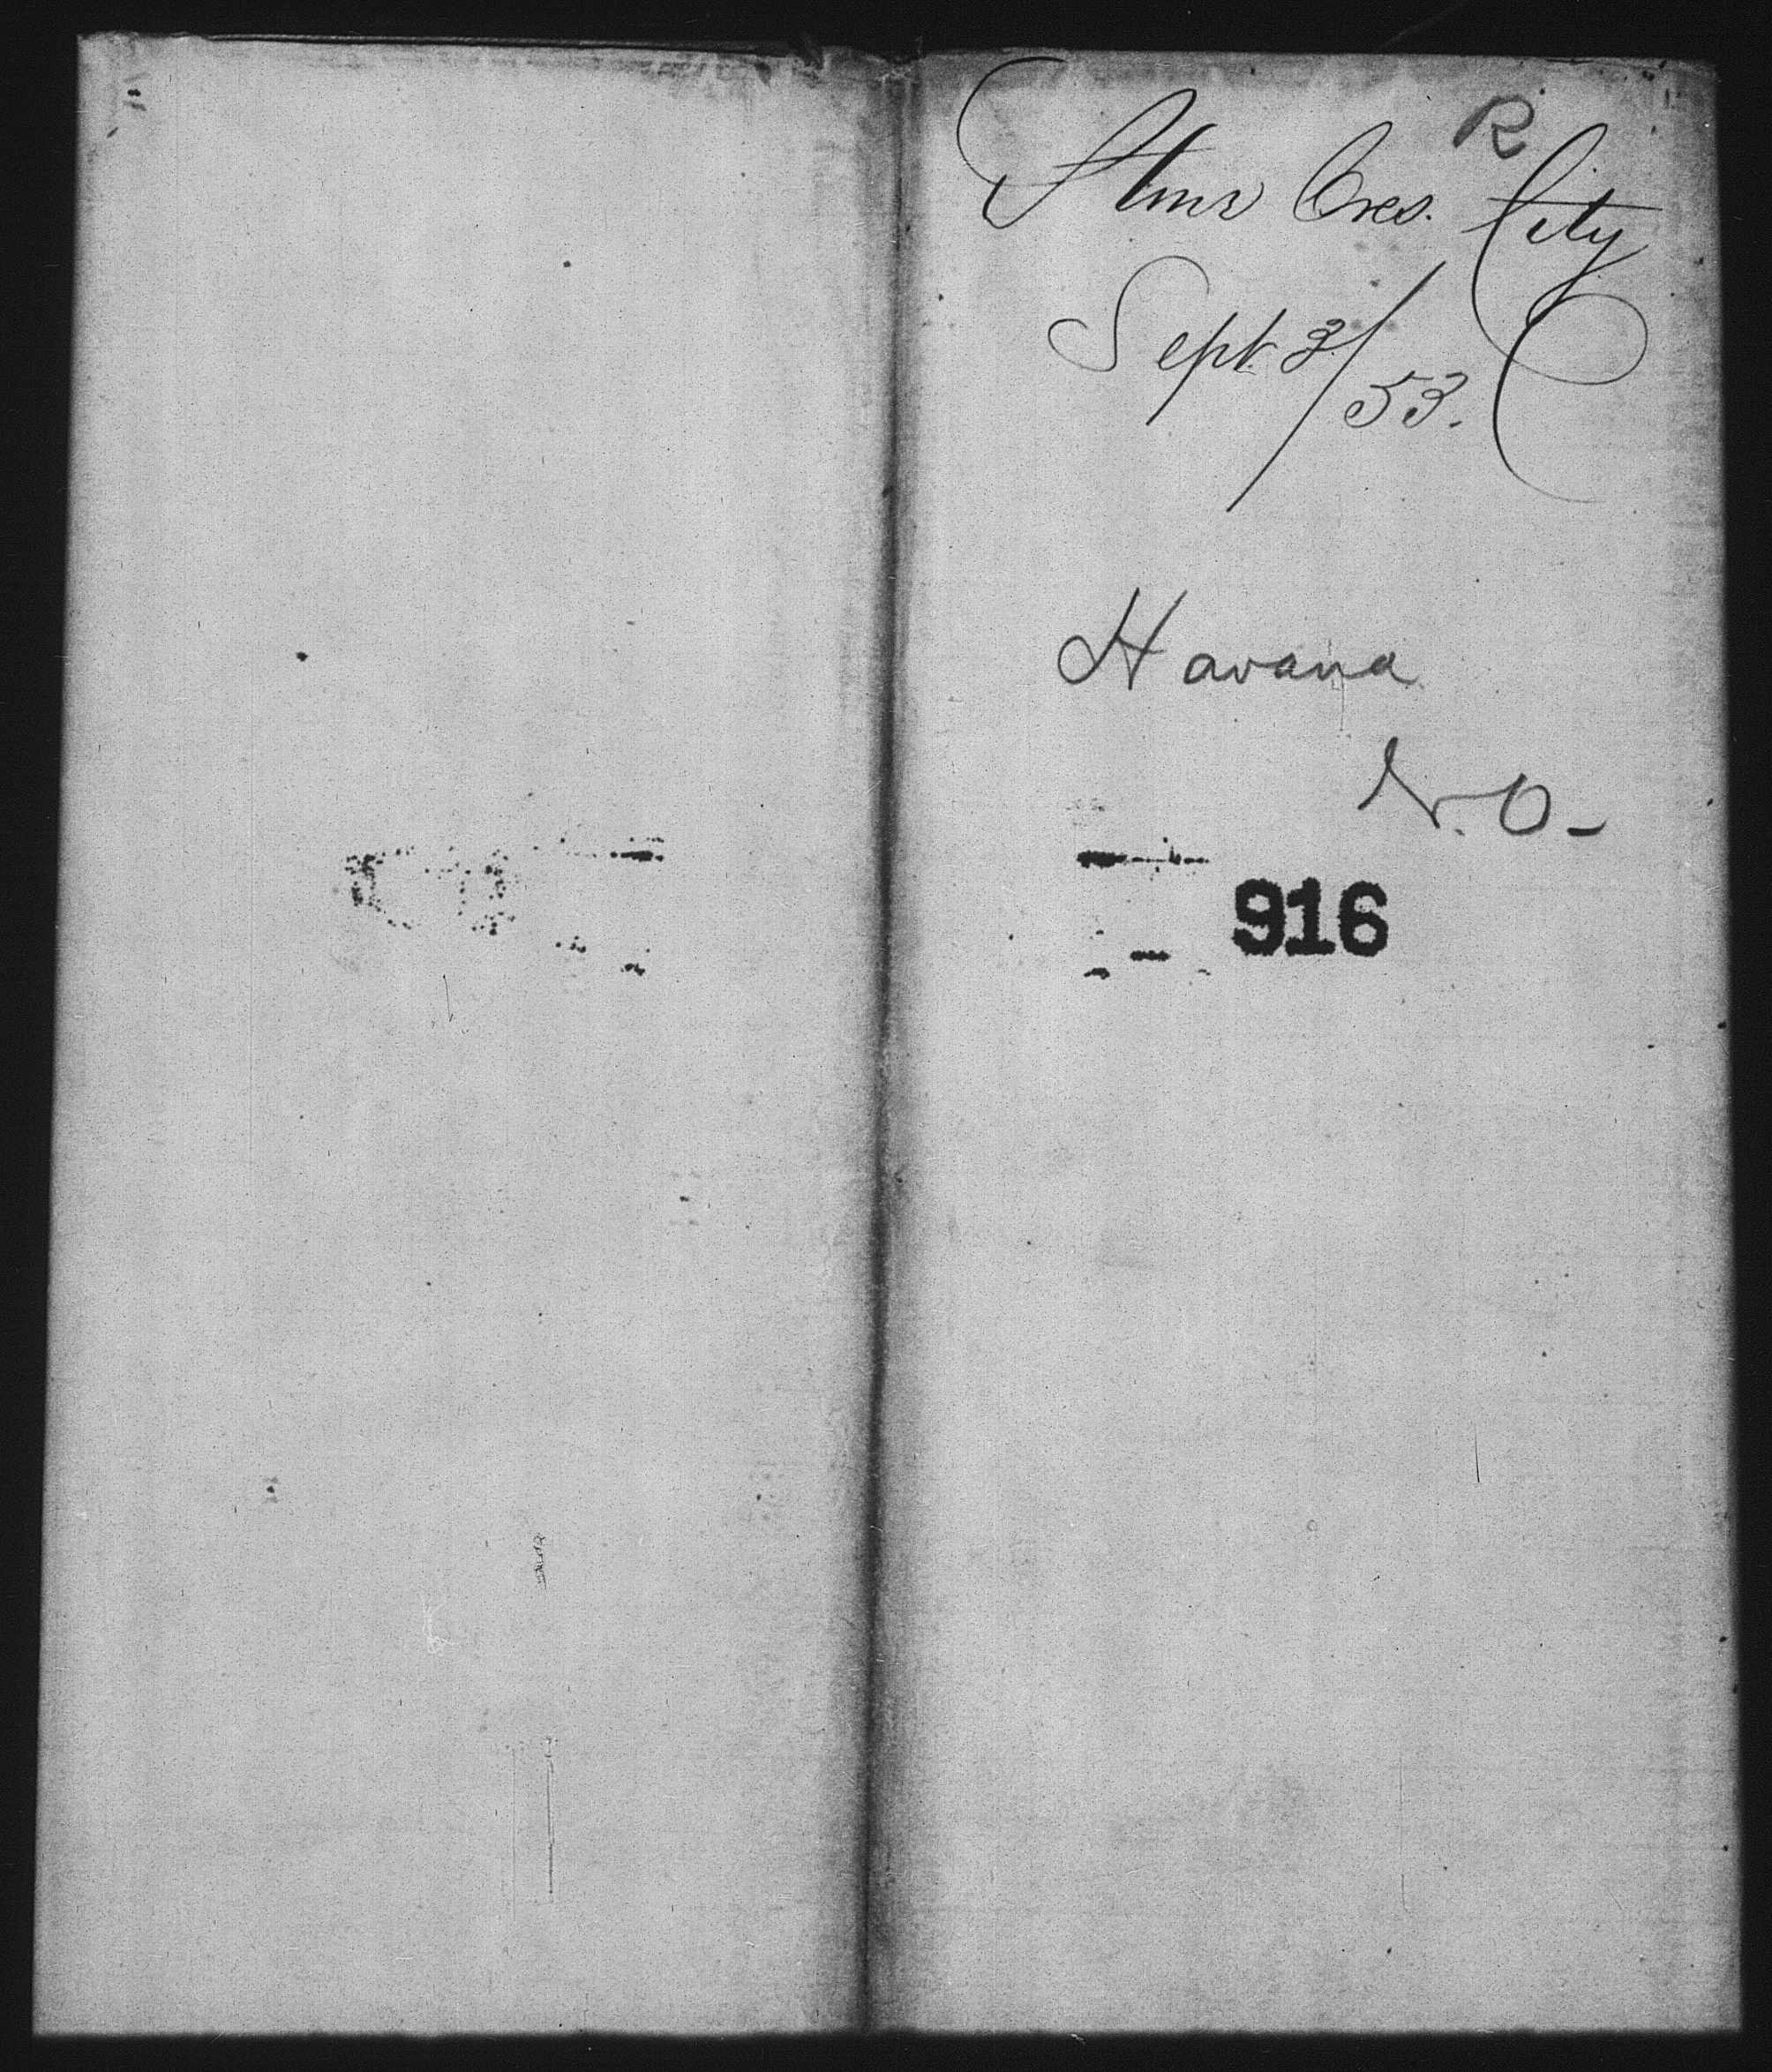 R
Stmr Cres. City
Sept. 3/53.
Havana
N.O-
916